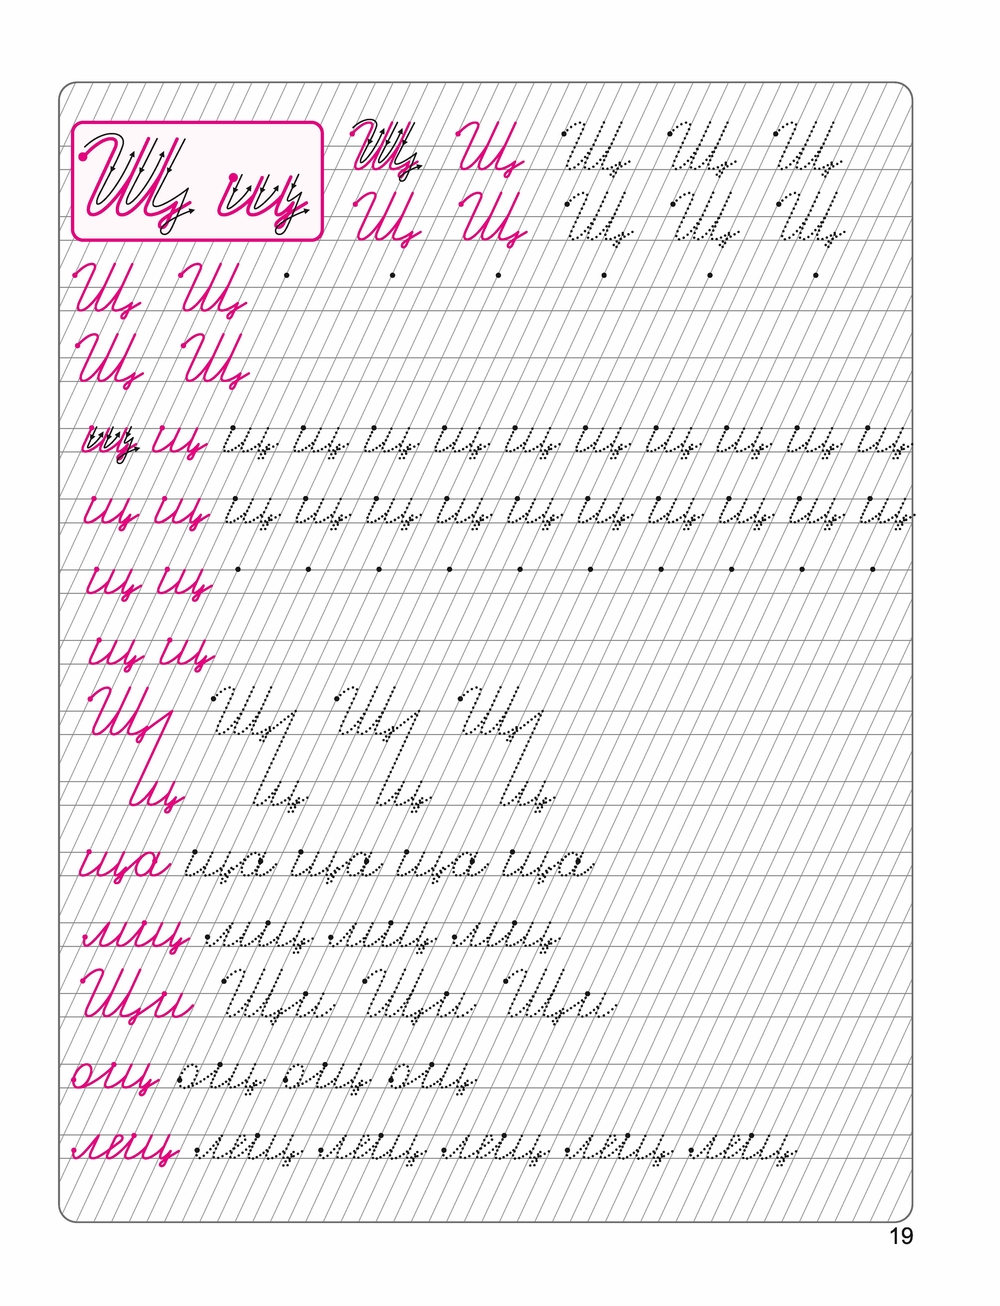 Щ щ Щ Щ Щ Щ Щ
Щ Щ Щ Щ Щ
Щ Щ
Щ Щ
щ щ щ щ щ щ щ щ щ щ щ щ
щ щ щ щ щ щ щ щ щ щ щ щ
щ щ
щ щ
Щ Щ Щ Щ
щ щ щ щ
ща ща ща ща ща
мщ мщ мщ мщ
Щи Щи Щи Щи
ощ ощ ощ ощ
лещ лещ лещ лещ лещ лещ
19